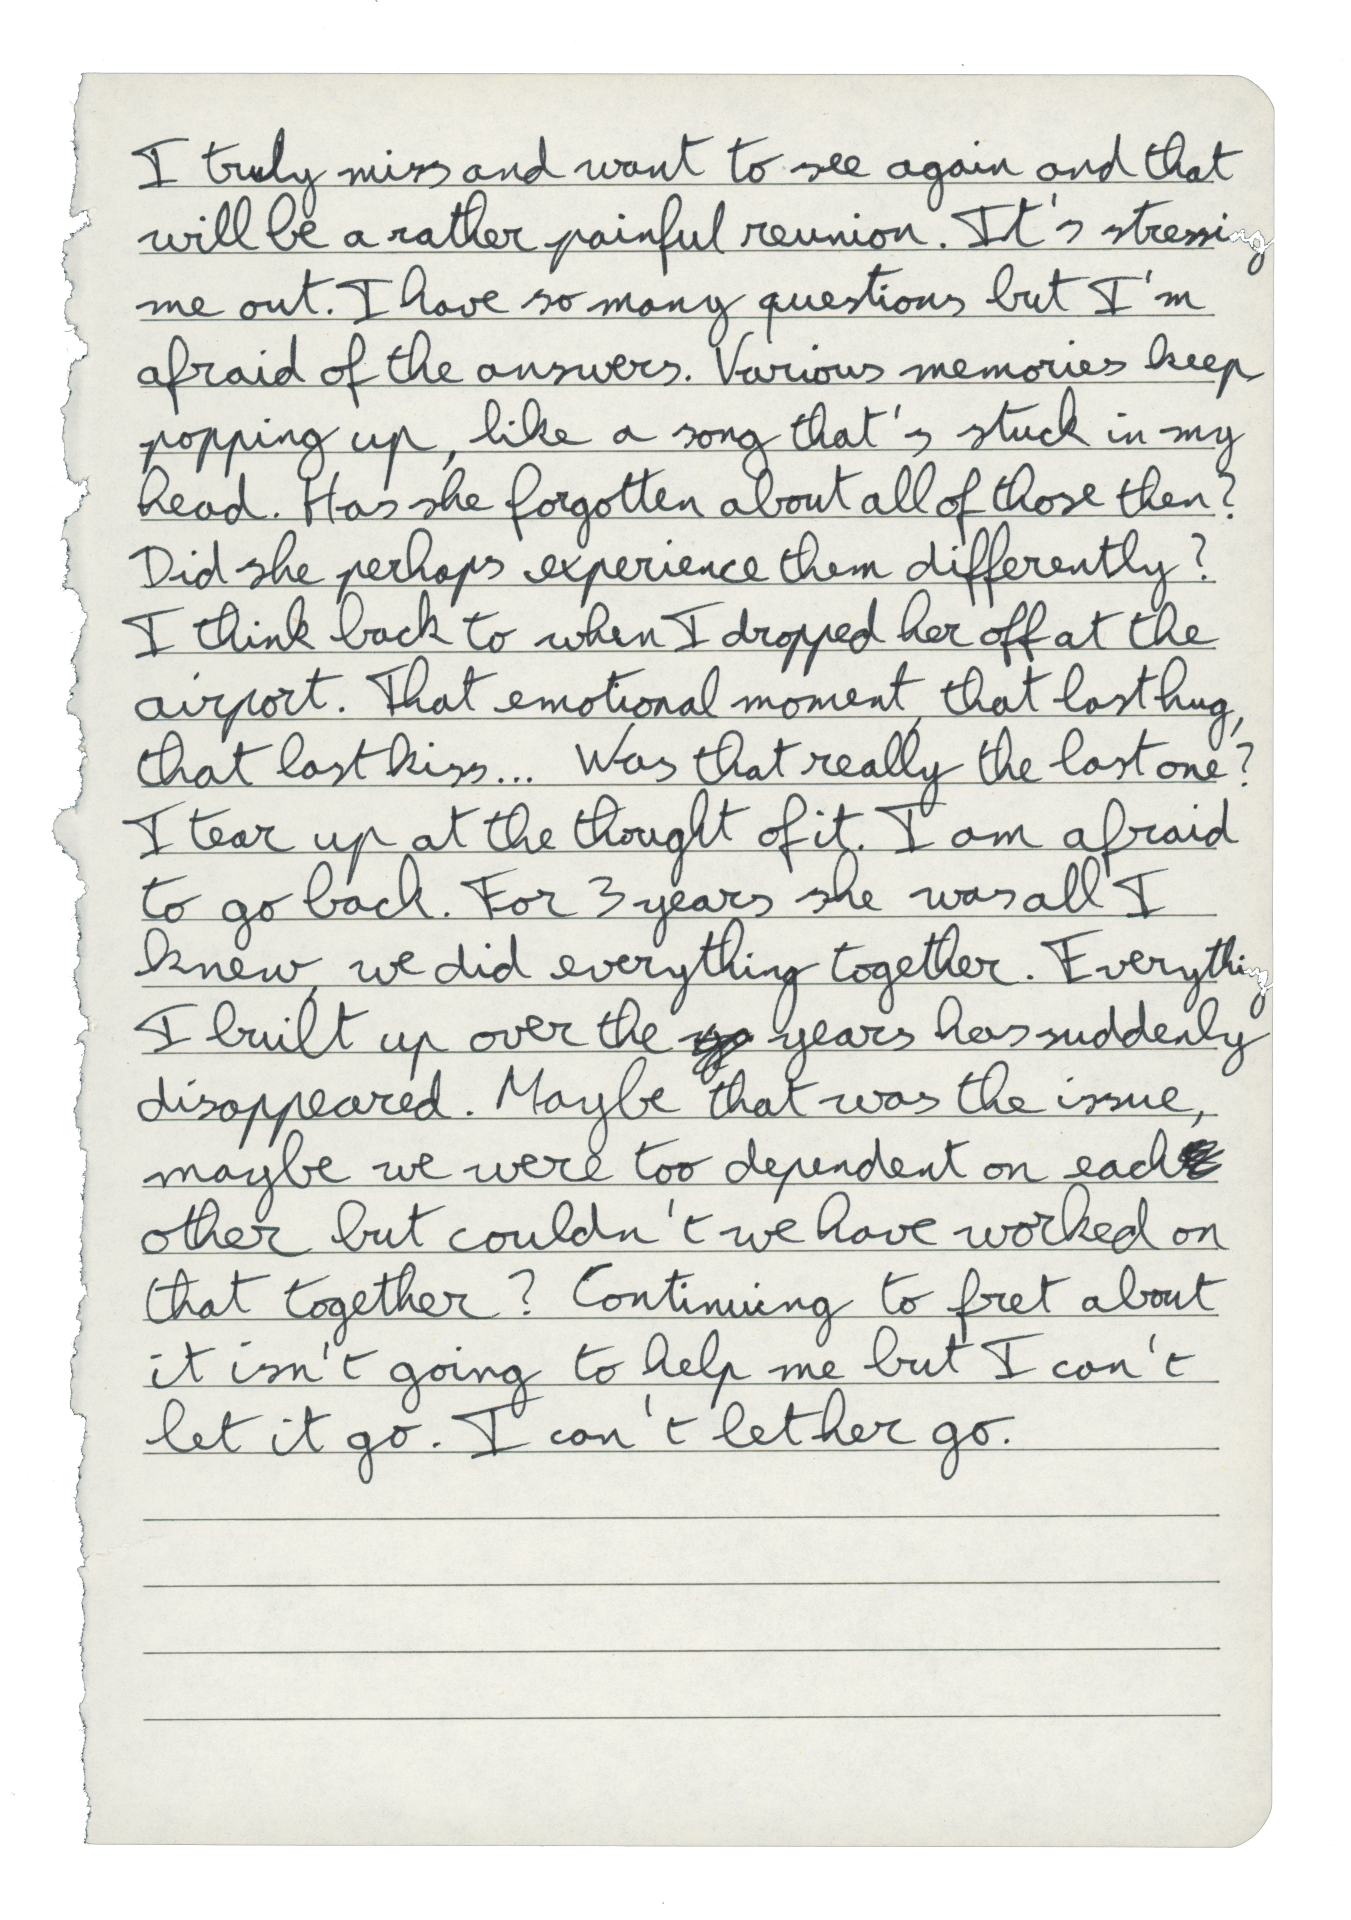 I truly miss and want to see again and that
will be a rather painful reunion. It's stressing
me out. I have so many questions but I'm
afraid of the answers. Various memories keep
popping up, like a song that's stuck in my
head. Has she forgotten about all of those then?
Did she perhaps experience them differently?
I think back to when I dropped her off at the
airport. That emotional moment, that last hug,
that last kiss... Was that really the last one?
I tear up at the thought of it. I am afraid
to go back. For 3 years she was all I
knew, we did everything together. Everything
I built up over the years has suddenly
disappeared. Maybe that was the issue,
maybe we were too dependent on each
other but couldn't we have worked on
that together? Continuing to fret about
it isn't going to help me but I can't
let it go. I can't let her go.